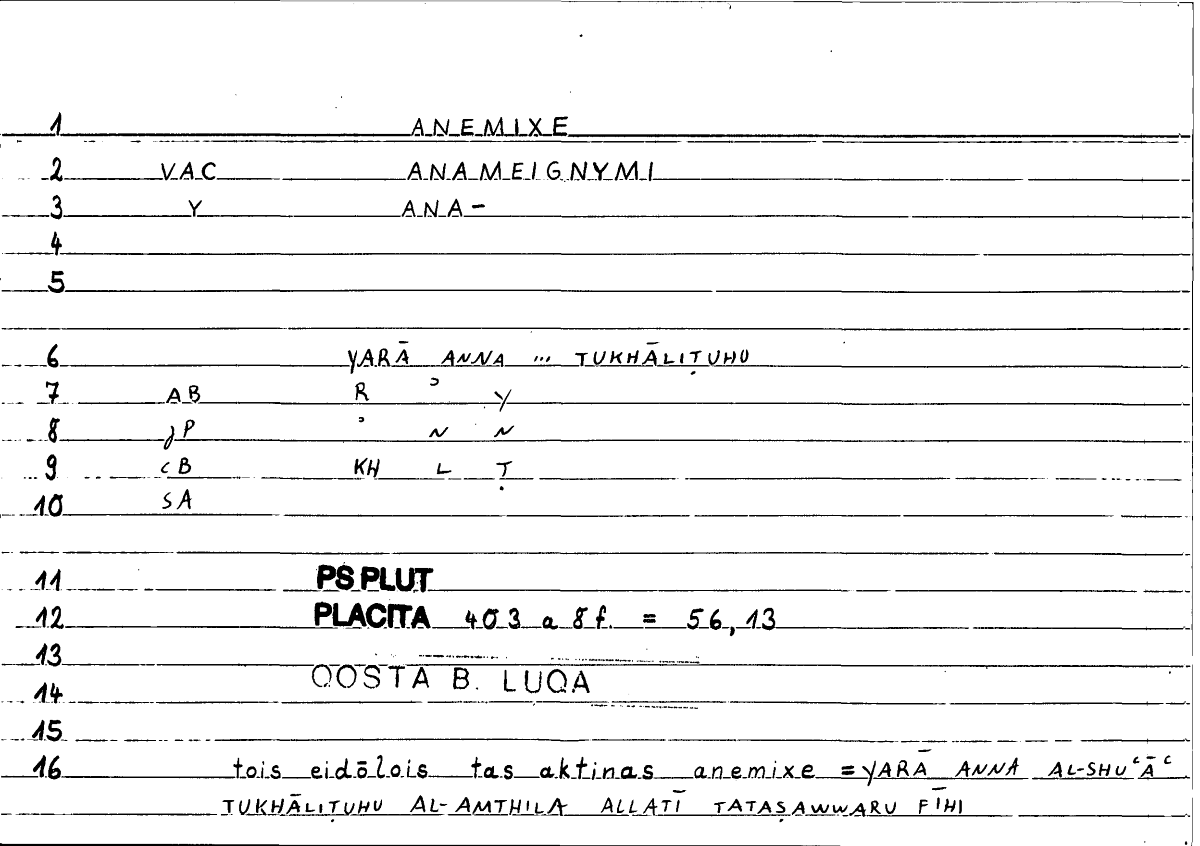 1 ANEMIXE
2 VAC ANAMEIGNYMI
3 Y ANA-
4
5
6 YARĀ ANNA ... TUKHĀLIṬUHU
7 AB R ʾ Y
8 JP ʾ N N
9 CB KH L Ṭ
10 SA
11 PS PLUT
12 PLACITA 403 a 8 f. = 56,13
13
QOSTA B. LUQA
14
15
16 tois eidōlois tas aktinas anemixe = YARĀ ANNA AL-SHUʿĀʿ
TUKHĀLIṬUHU AL-AMTHILA ALLATĪ TATAṢAWWARU FĪHI